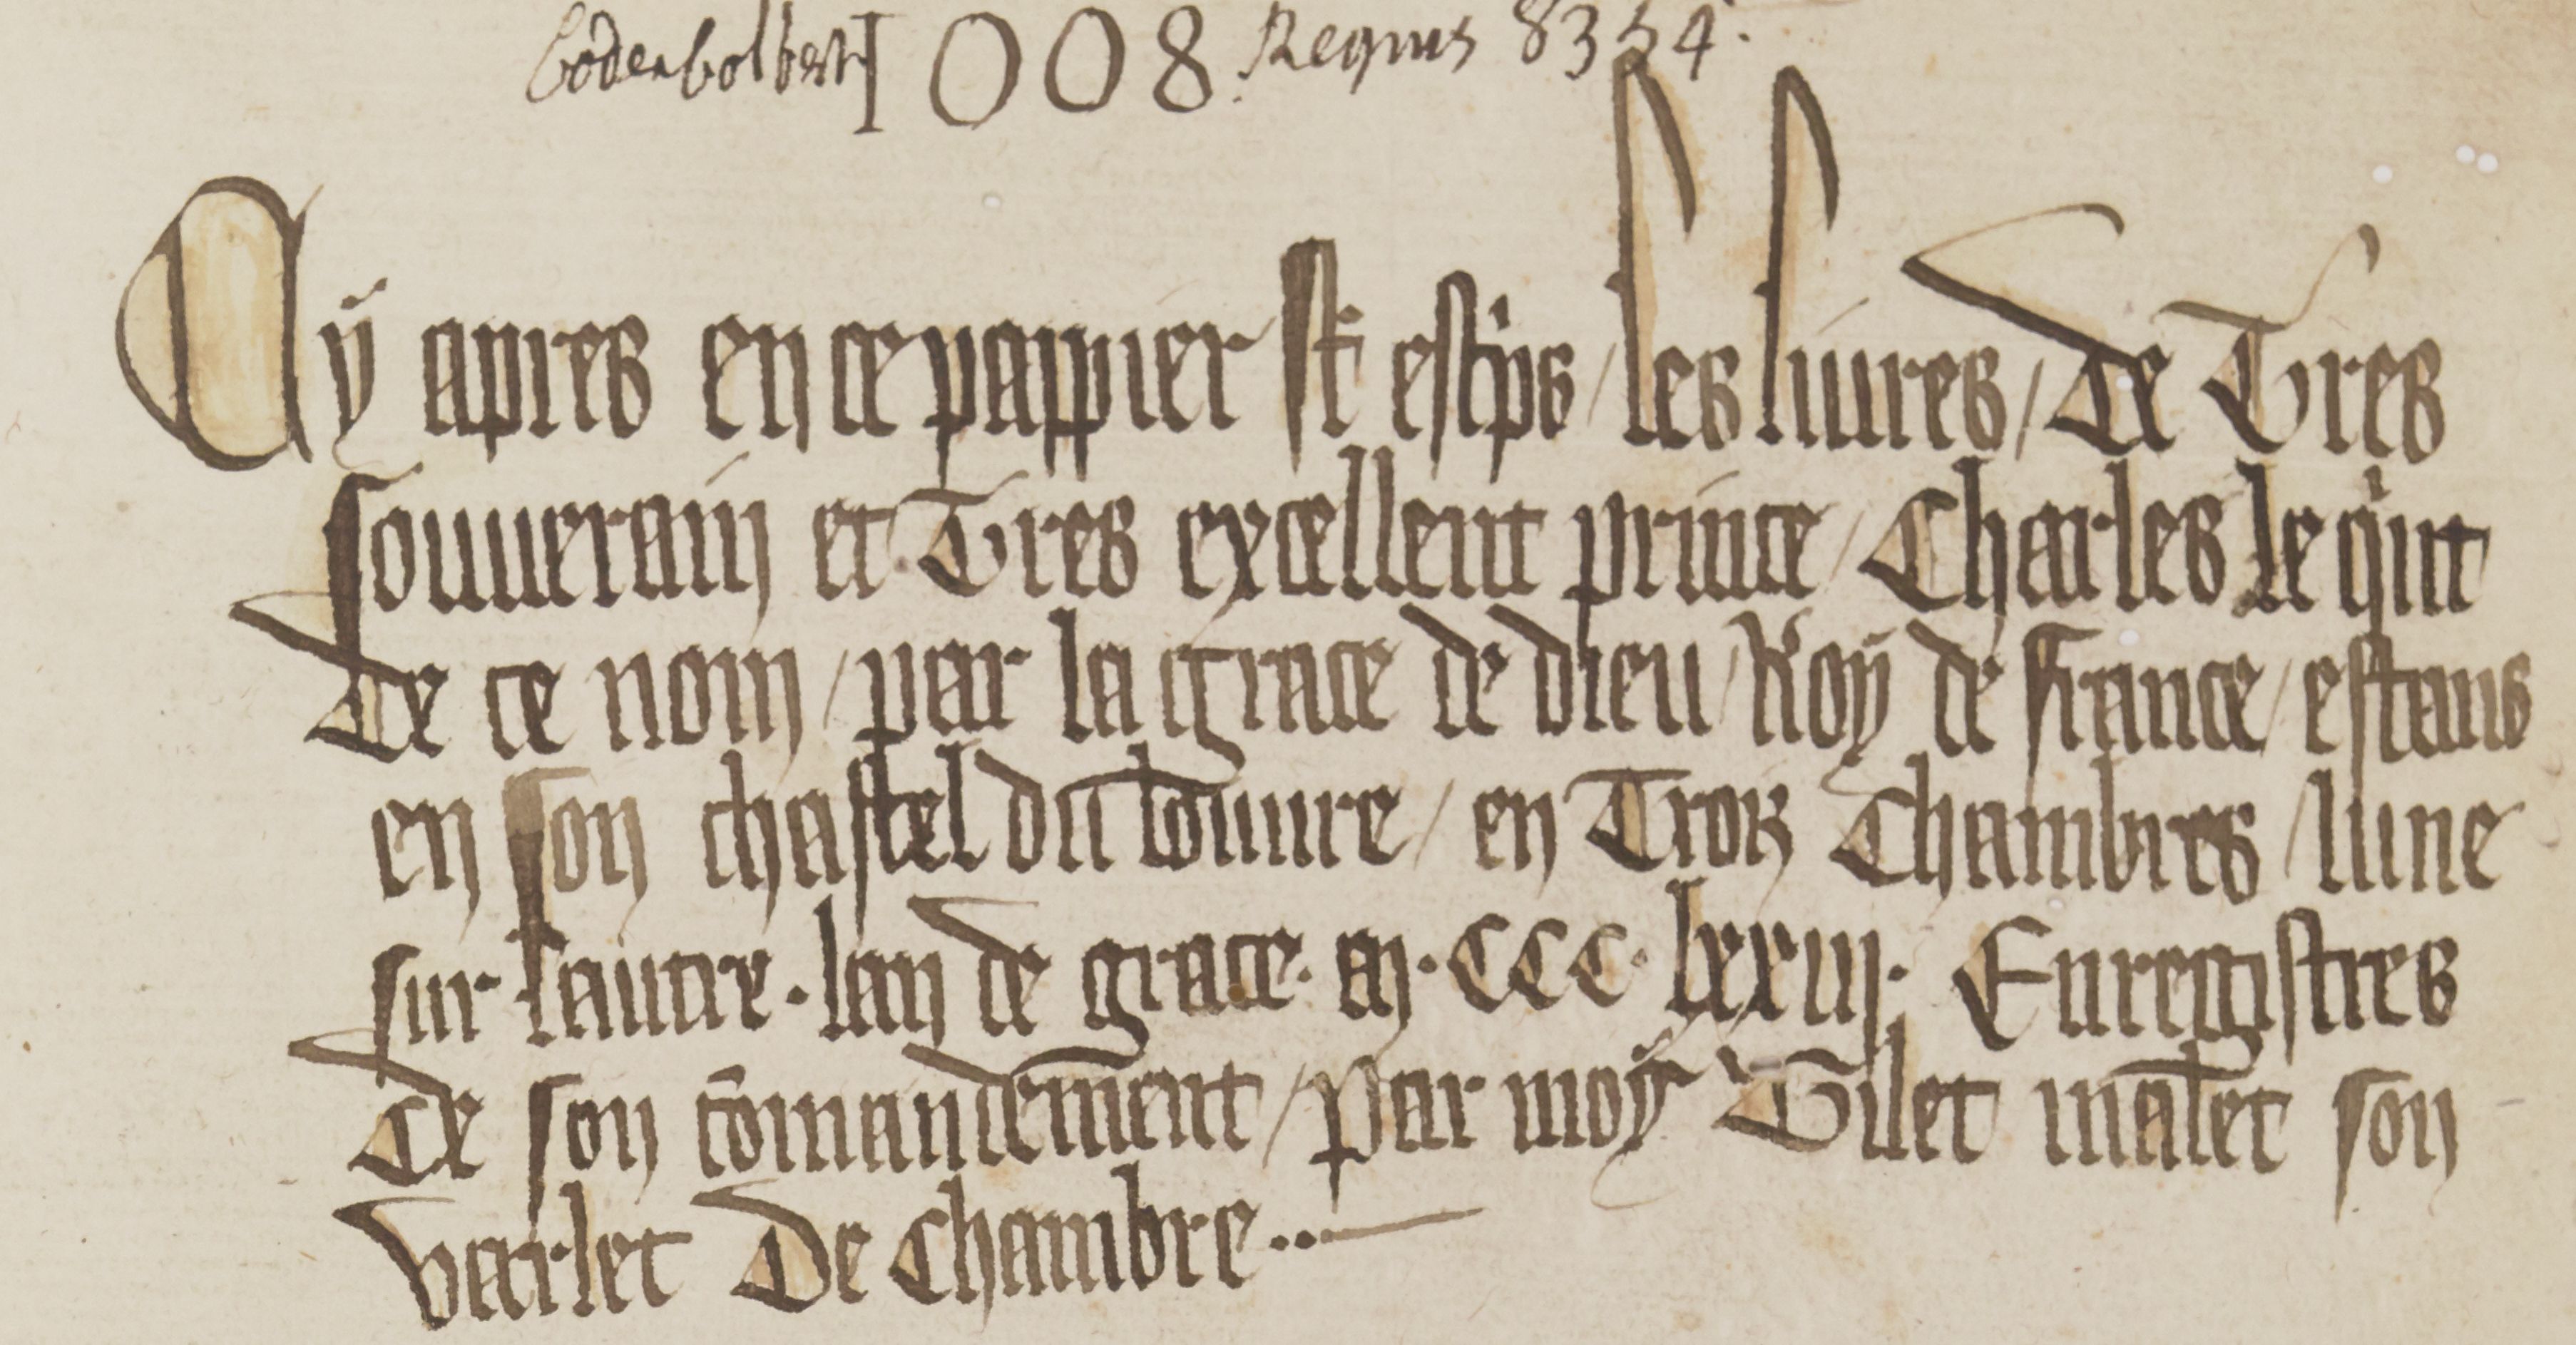 Codex Colbert 1008. Regius 8354.
Cy apres en ce pappier st esc'ps / les liures / de Tres
souuerain et Tres excellent prince / Charles le q'nt
de ce nom / par la grace de dieu / Roy de france / estans
en son chastel du louure / en Trois Chambres / lune
sur lautre . lan de grace . m . CCC . lxxiii . Enregistres
De son cōmandement / par moy Gilet malet son
varlet De Chambre ..